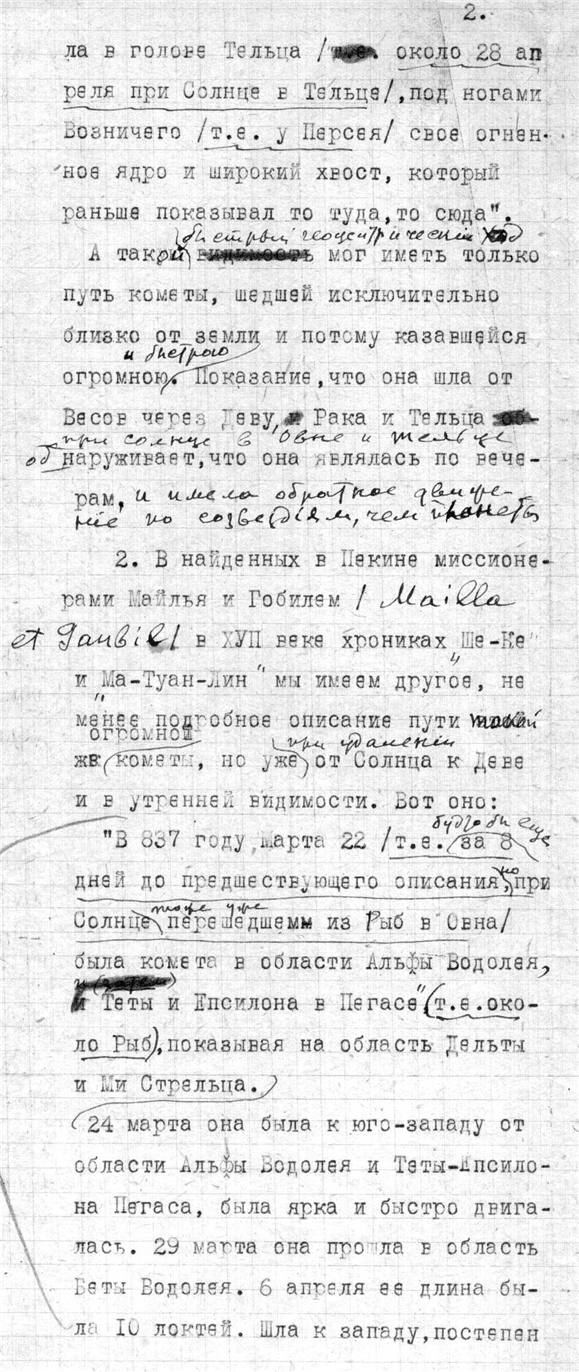 2.
ла в голове Тельца /т.е. около 28 ап
реля при Солнце в Тельце/,под ногами
Возничего /т.е. у Персея/ свое огнен-
ное ядро и широкий хвост, который
раньше показывал то туда,то сюда".
быстрый геоцентрический ход
А такой видимость мог иметь только
путь кометы, шедшей исключительно
близко от земли и потому казавшейся
и быстрою
огромною. Показание,что она шла от
Весов через Деву, и Рака и Тельца об-
при солнце в Овне и Тельце
обнаруживает,что она являлась по вече-
рам, и имела обратное движе-
ние по созвездиям, чем
2. В найденных в Пекине миссионе-
рами Майлья и Гобилем / Mailla
et Gaubil/ в ХУП веке хрониках "Ше-Ке"
и "Ма-Туан-Лин" мы имеем другое, не
менее подробное описание пути такой
огромной
же кометы, но уже от Солнца к Деве
при удалении
и в утренней видимости. Вот оно:
будто бы еще
"В 837 году,Марта 22 /т.е. за 8
дней до предшествующего описания, но при
тоже уже
Солнце перешедшем из Рыб в Овна/
была комета в области Альфы Водолея,
и (затем)
и Теты и Епсилона в Пегасе" (т.е.око-
ло Рыб),показывая на область Дельты
и Ми Стрельца.
24 марта она была к юго-западу от
области Альфы Водолея и Теты-Епсило-
на Пегаса, была ярка и быстро двига-
лась. 29 марта она прошла в область
Беты Водолея. 6 апреля ее длина бы-
ла 10 локтей. Шла к западу,постепен